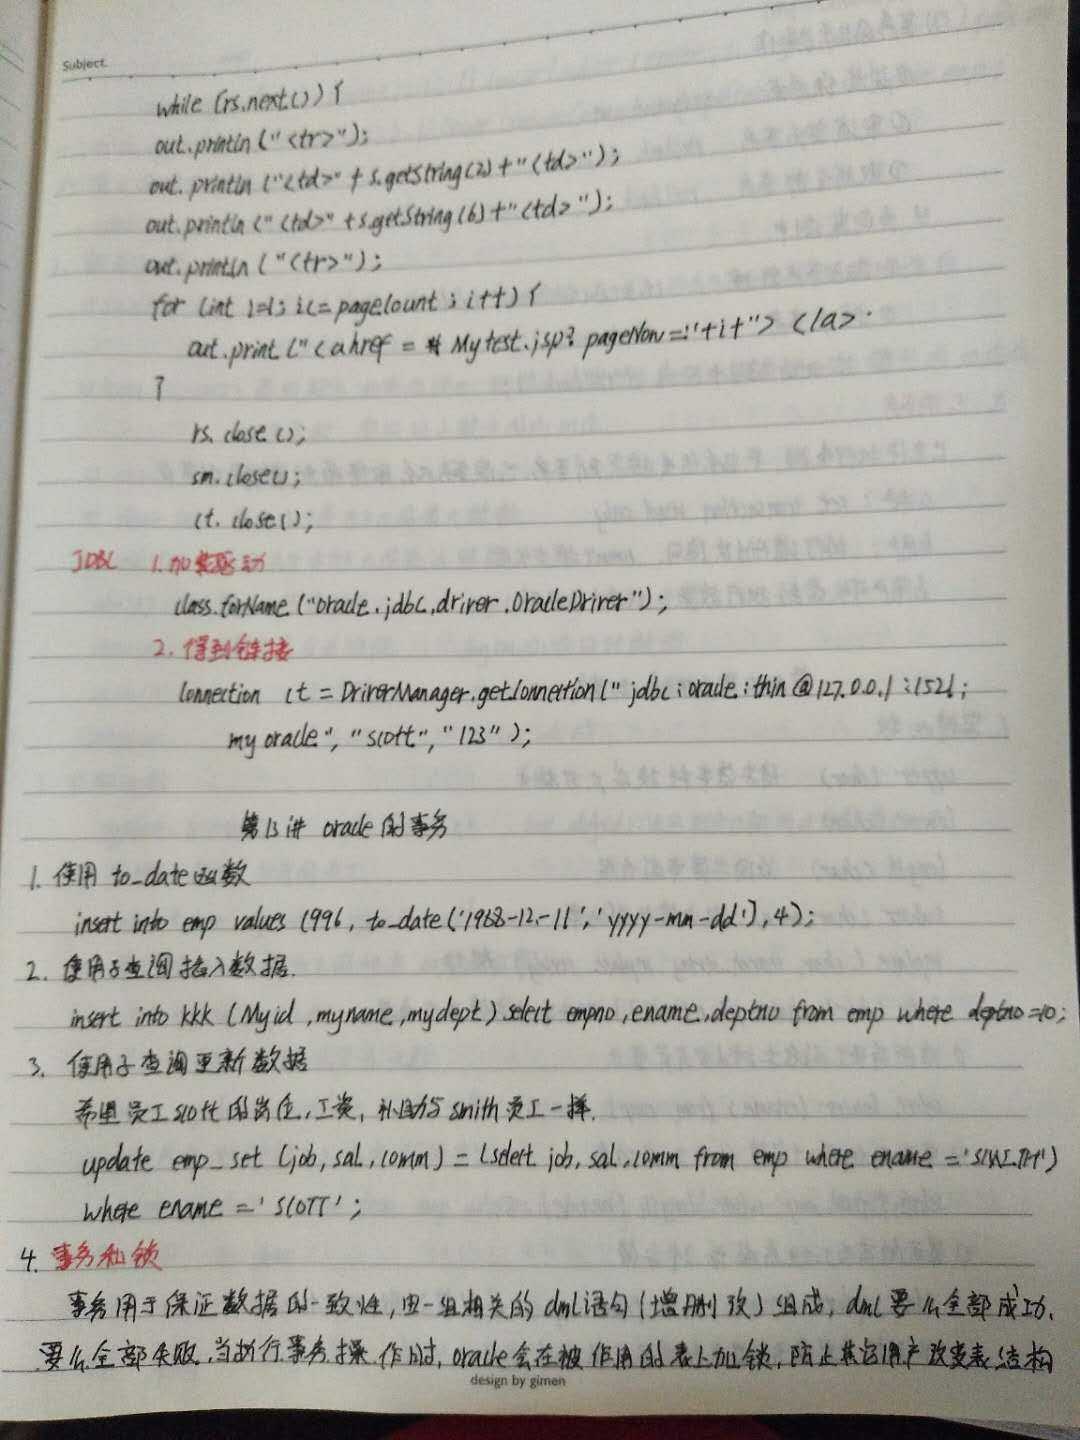 Subject.
while (rs.next()) {
out.println ("<tr>");
out.println ("<td>" + s.getString(2) + "<td>");
out.println ("<td>" + s.getString(6) + "<td>");
out.println ("<tr>");
for (int i=1; i<=pageCount; i++) {
out.print ("<a href = Mytest.jsp? pageNow="+i+"> </a>
}
rs. close ();
sm. close();
ct. close();
JDBC 1. 加载驱动
class.forName ("oracle.jdbc.driver.OracleDriver");
2. 得到链接
Connection ct = DriverManager.getConnection(" jdbc:oracle:thin@127.0.0.1:1521:
my oracle", "scott", "123");
第13讲 oracle 的事务
1. 使用 to_date 函数
insert into emp values (996, to_date('1968-12-11','yyyy-mm-dd'),4);
2. 使用子查询插入数据.
insert into kkk (Myid ,myname,mydept) select empno,ename,deptno from emp where deptno=10;
3. 使用子查询更新数据
希望员工scott的岗位,工资, 补助与smith员工一样.
update emp set (job, sal, comm) = (select job, sal, comm from emp where ename ='SMITH')
where ename ='SCOTT';
4. 事务和锁
事务用于保证数据的一致性, 由一组相关的dml语句(增删改)组成, dml要么全部成功,
要么全部失败. 当执行事务操作时, oracle会在被作用的表上加锁, 防止其它用户改变表结构
design by gimen